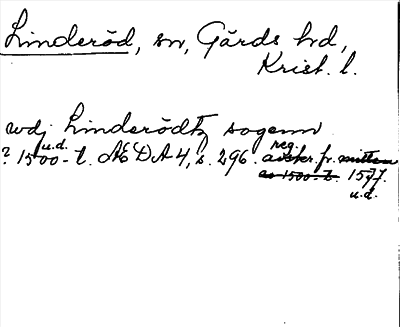 Linderöd, sn, Gärds hd,
Krist. l.
wdj Linderödtz sogenn
u.d. reg.
? 1500-t. ÆDA 4, s. 296. avskr. fr. mitten
av 1500-t. 1577.
u.d.